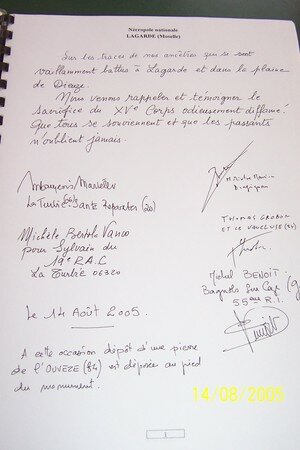 Nécropole nationale
LAGARDE (Moselle)
Sur les traces de nos ancêtres qui se sont
vaillamment battus à Lagarde et dans la plaine
de Dieuze.
Nous venons rappeler et témoigner le
sacrifice du XVe Corps odieusement diffamé
Que tous se souviennent et que les passants
n'oublient jamais.
La Turbie
Michèle Bertola
pour Sylvain du
19e R.A.C
La Turbie 06320
THOMAS
ET LE VAUCLUSE (84)
Michel BENOIT
Bagnols Sur Cèze
55ème R.I.
Le 14 Août 2005.
A cette occasion dépôt d'une pierre
de l'OUVEZE (84) est déposée au pied
du monument.
14/08/2005
1